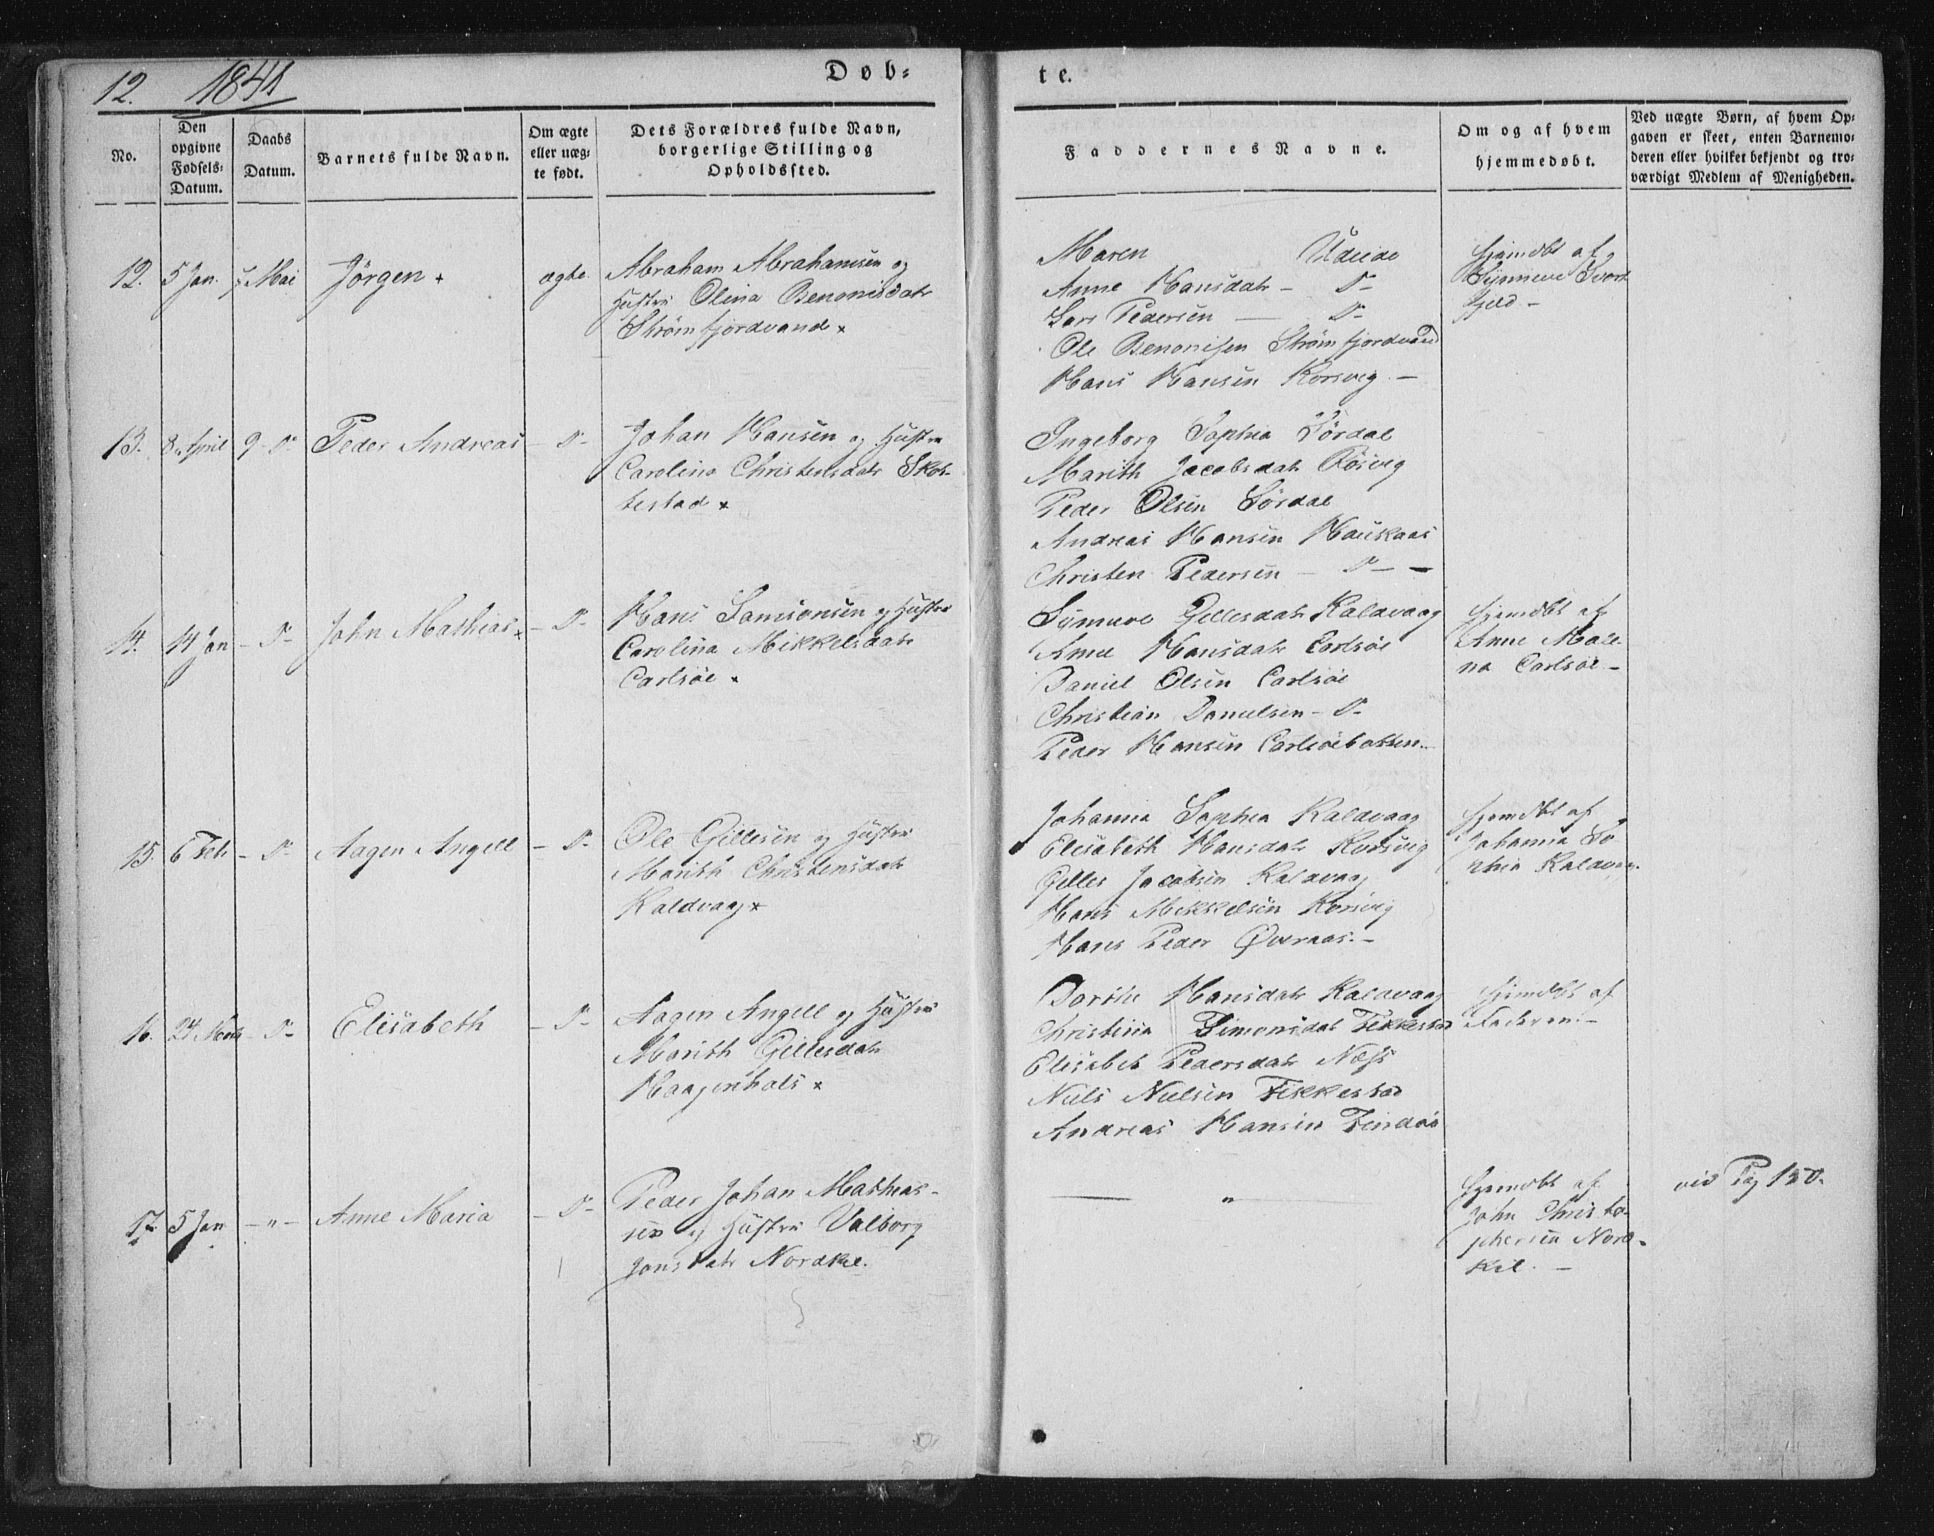 12. 1841
Døb=
te.
No.
Den opgivne Fødsels-Datum.
Daabs Datum.
Barnets fulde Navn.
Om ægte eller uæg-te født.
Dets Forældres fulde Navn, borgerlige Stilling og Opholdssted.
Faddernes Navne.
Om og af hvem hjemmedøbt.
Ved uægte Børn, af hvem Op-gaven er skeet, enten Barnemo-deren eller hvilket bekjendt og tro-værdigt Medlem af Menigheden.
12. 5 Jan. Mai Jörgen ægte
Abraham Abrahamsen og
Hustru Olina Benonisdatr
Strømfjordvand
Maren
Anne Hansdatr - D-
Lars Pedersen - D-
Ole Benonisen Strømfjordvand
Hans Hansen Korsvig -
hjemdbt af
Synneve Svort
fjeld -
13. 8 April 9 - D- Peder Andreas - D-
Johan Hansen og Hustru
Carolina Christensdatr Skot-
testad
Ingeborg Sophia Sördal
Marith Jacobsdatr
Peder Olsen Sørdal
Andreas Hansen Hauskaas
Christen Pedersen - D- -
14. 14 Jan - D- John Mathias - D-
Hans Samsonsen og Hustru
Carolina Mikkelsdatr
Carlsöe
Gillesdatr Kaldvaag
Anne Hansdatr Carlsöe
Daniel Olsen Carlsöe
Christian Danielsen - D-
Peder Hansen Carlsöebotten -
hjemdbt af
Anne Male-
na Carlsöe -
15. 6 Feb. - D- Aagen Angell - D-
Ole Gillesen og Hustru
Marith Christensdatr
Kaldvaag
Johanna Sophia Kaldvaag
Elisabeth Hansdatr Korsvig
Gilles Jacobsen Kaldvaag
Hans Mikkelsen Korsvig
Hans Peder Øvernas. -
hjemdbt af
Johanna So
phia Kaldvaag
16. 24 - D- Elisabeth - D-
Aagen Angell og Hustru
Marith Gillesdatr
Haagenhals
Hansdatr Kaldvaag
Christina Simonsdat
Elisabet Pedersdatr Næss
Nils Nielsen
Andreas Hansen Findöe
hjemdbt af
Faderen -
17. 5 Jan - " - Anne Maria - D-
Peder Johan Mathias-
sen og Hustru Valborg
Jonsdatr Nordkil.
"
hjemdbt af
John Christo-
phersen Nord-
kil. -
vid Pag 150.